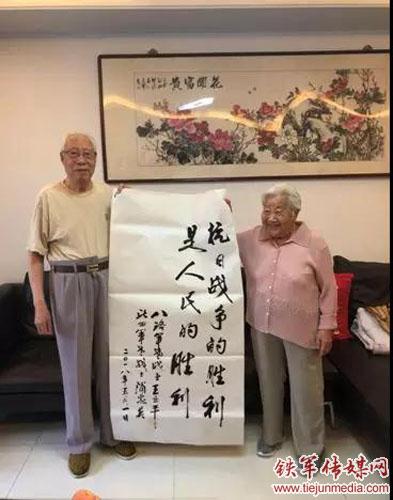 花開富貴
抗日战争的胜利
是人民的胜利
八路军老战士王
新四军老战士浦
二〇一八年五月一日
铁军传媒网
www.tiejunmedia.com